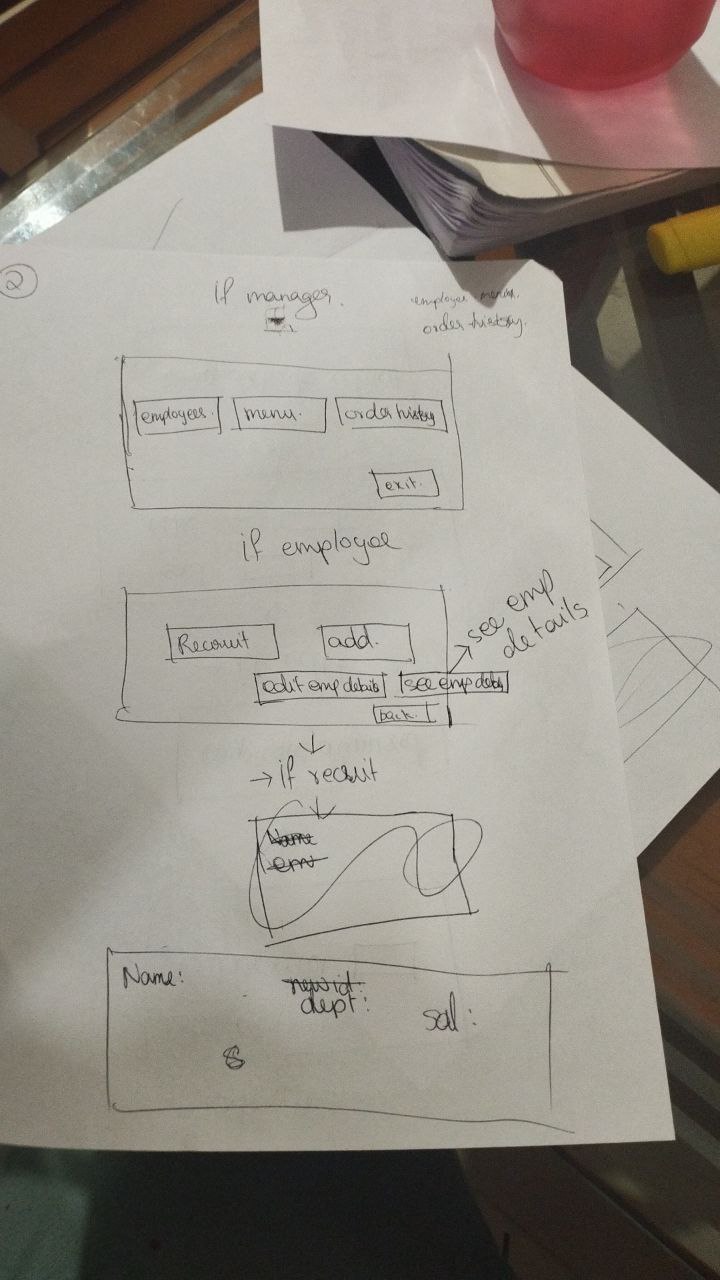 2
if manager.
employee menu.
order history.
employees. menu. order history
exit.
if employee
see emp
details
Recruit add.
edit emp details see emp details
back.
→ if recruit
Name
Name:
new id:
dept:
sal: